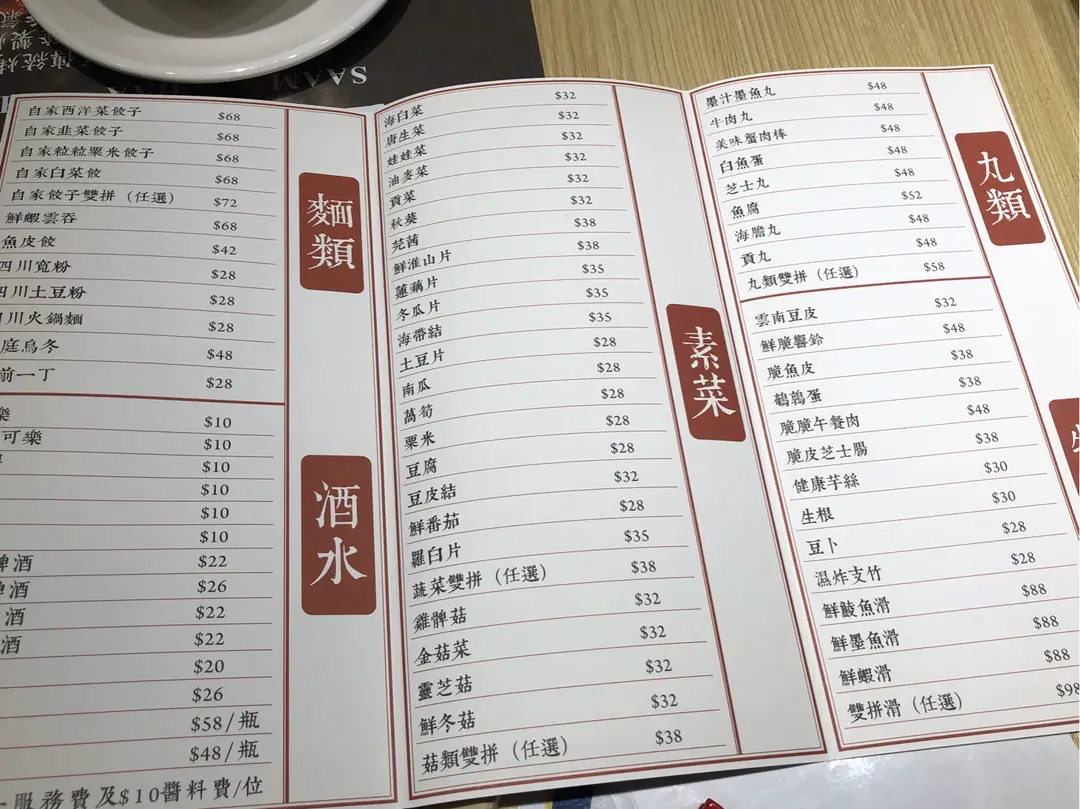 SAAM
自家西洋菜餃子 $68
自家韭菜餃子 $68
自家粒粒粟米餃子 $68
自家白菜餃 $68
自家餃子雙拼（任選） $72
鮮蝦雲吞 $68
魚皮餃 $42
四川寬粉 $28
四川土豆粉 $28
川火鍋麵 $28
庭烏冬 $48
前一丁 $28
麵類
樂 $10
可樂 $10
$10
$10
$10
$10
啤酒 $22
啤酒 $26
酒 $22
酒 $22
$20
$26
$58/瓶
$48/瓶
酒水
服務費及$10醬料費/位
海白菜 $32
唐生菜 $32
娃娃菜 $32
油麥菜 $32
貢菜 $32
秋葵 $32
芫茜 $38
鮮淮山片 $38
蓮藕片 $35
冬瓜片 $35
海帶結 $35
土豆片 $28
南瓜 $28
萵筍 $28
粟米 $28
豆腐 $28
豆皮結 $32
鮮番茄 $28
羅白片 $35
蔬菜雙拼（任選） $38
雞髀菇 $32
金菇菜 $32
靈芝菇 $32
鮮冬菇 $32
菇類雙拼（任選） $38
素菜
墨汁墨魚丸 $48
牛肉丸 $48
美味蟹肉棒 $48
白魚蛋 $48
芝士丸 $48
魚腐 $52
海膽丸 $48
貢丸 $48
丸類雙拼（任選） $58
丸類
雲南豆皮 $32
鮮脆響鈴 $48
脆魚皮 $38
鵪鶉蛋 $38
脆脆午餐肉 $48
脆皮芝士腸 $38
健康芋絲 $30
生根 $30
豆卜 $28
濕炸支竹 $28
鮮鯪魚滑 $88
鮮墨魚滑 $88
鮮蝦滑 $88
雙拼滑（任選） $98